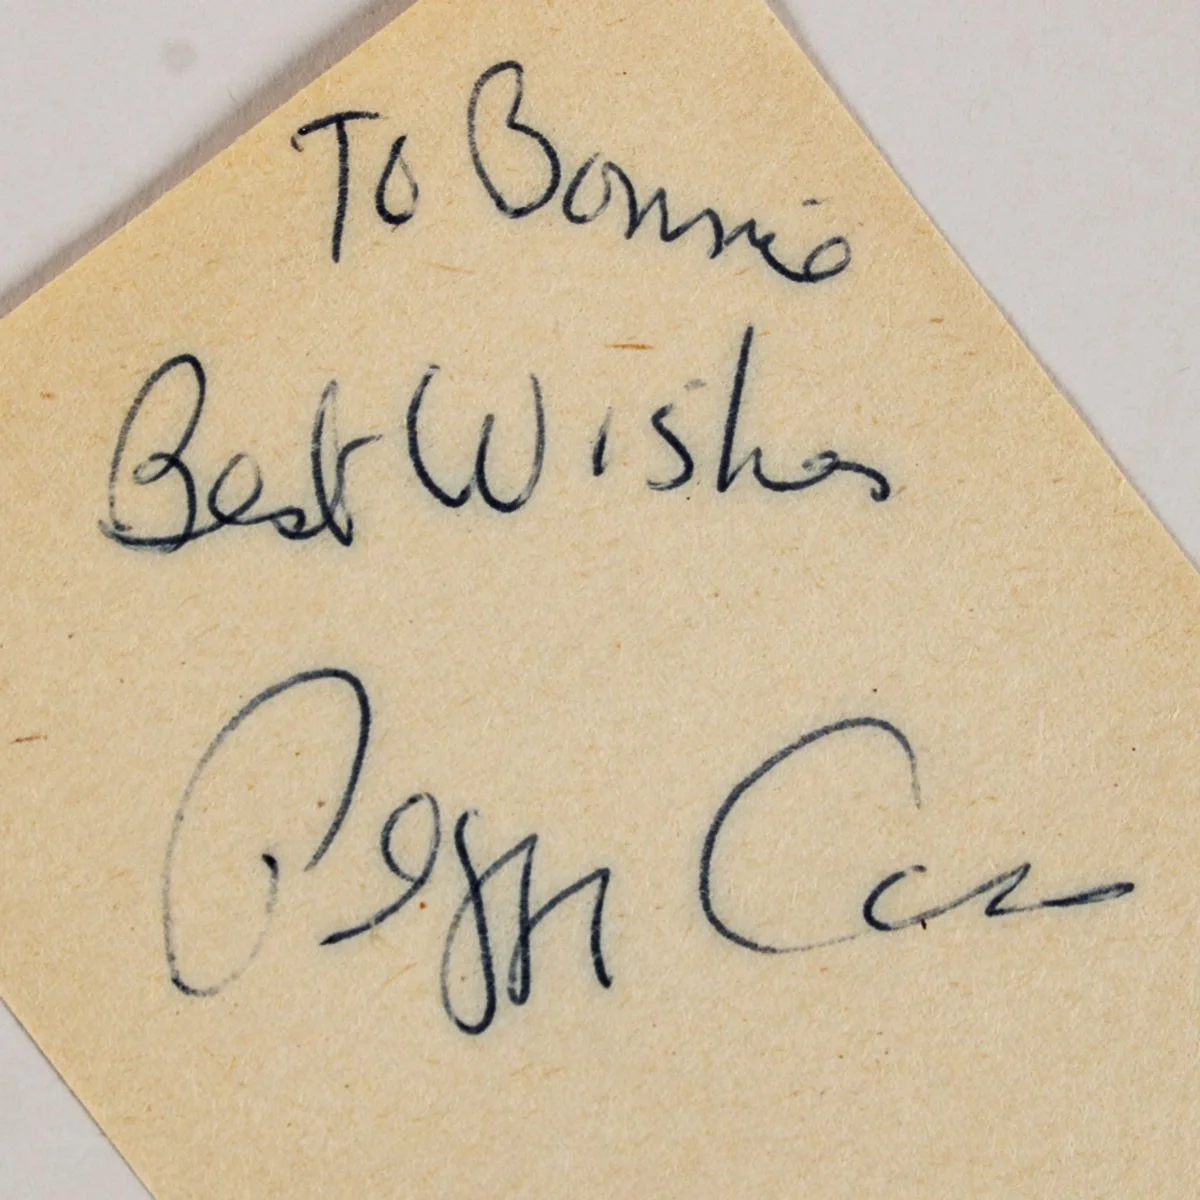 To Bonnie
Best Wishes
Peggy Cass